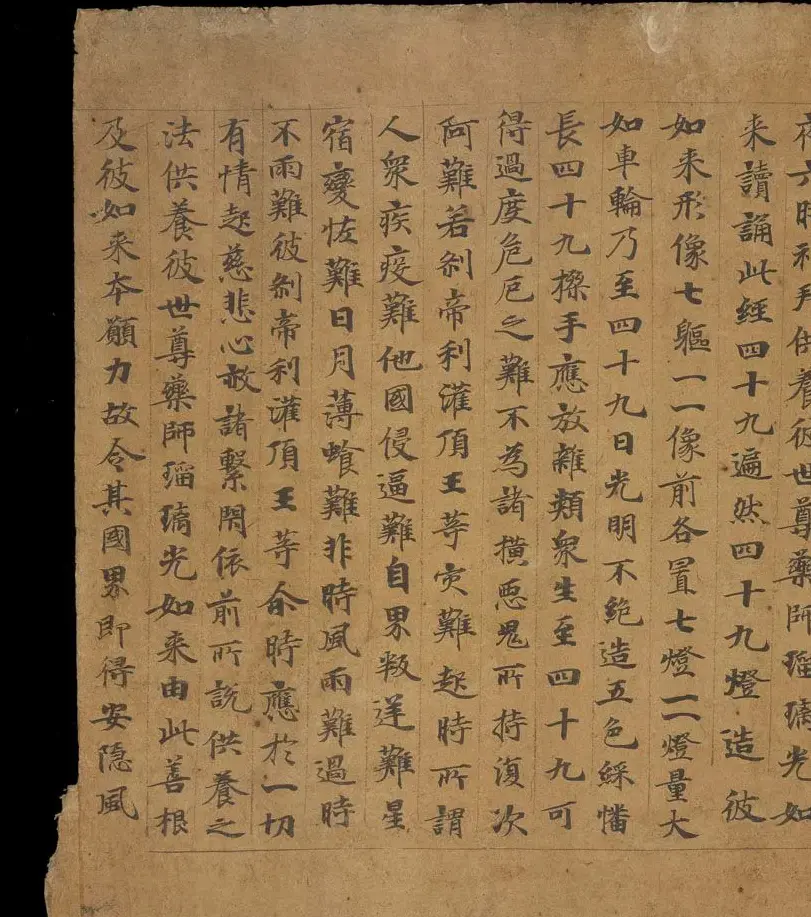 夜六時礼拜供養彼世尊藥師瑠璃光如
来讀誦此經四十九遍然四十九燈造彼
如来形像七軀一一像前各置七燈一一燈量大
如車輪乃至四十九日光明不絶造五色綵幡
長四十九搩手應放雜類衆生至四十九可
得過度危厄之難不為諸横惡鬼所持復次
阿難若刹帝利灌頂王等灾難起時所謂
人衆疾疫難他國侵逼難自界叛逆難星
宿變恠難日月薄蝕難非時風雨難過時
不雨難彼刹帝利灌頂王等尒時應於一切
有情起慈悲心赦諸繫閇依前所説供養之
法供養彼世尊藥師瑠璃光如来由此善根
及彼如来本願力故令其國界即得安隱風